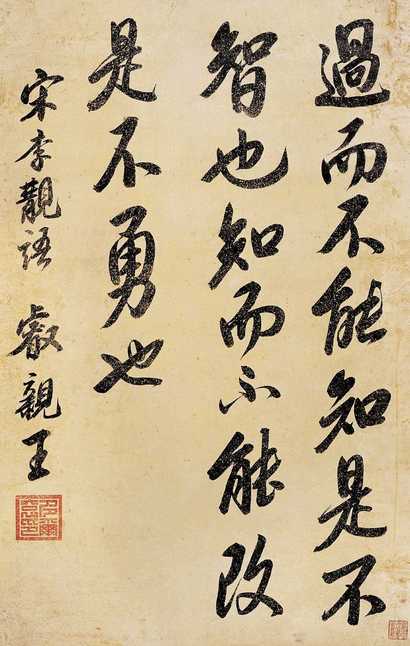 過而不能知是不
智也知而不能改
是不勇也
宋李覯語 叡親王